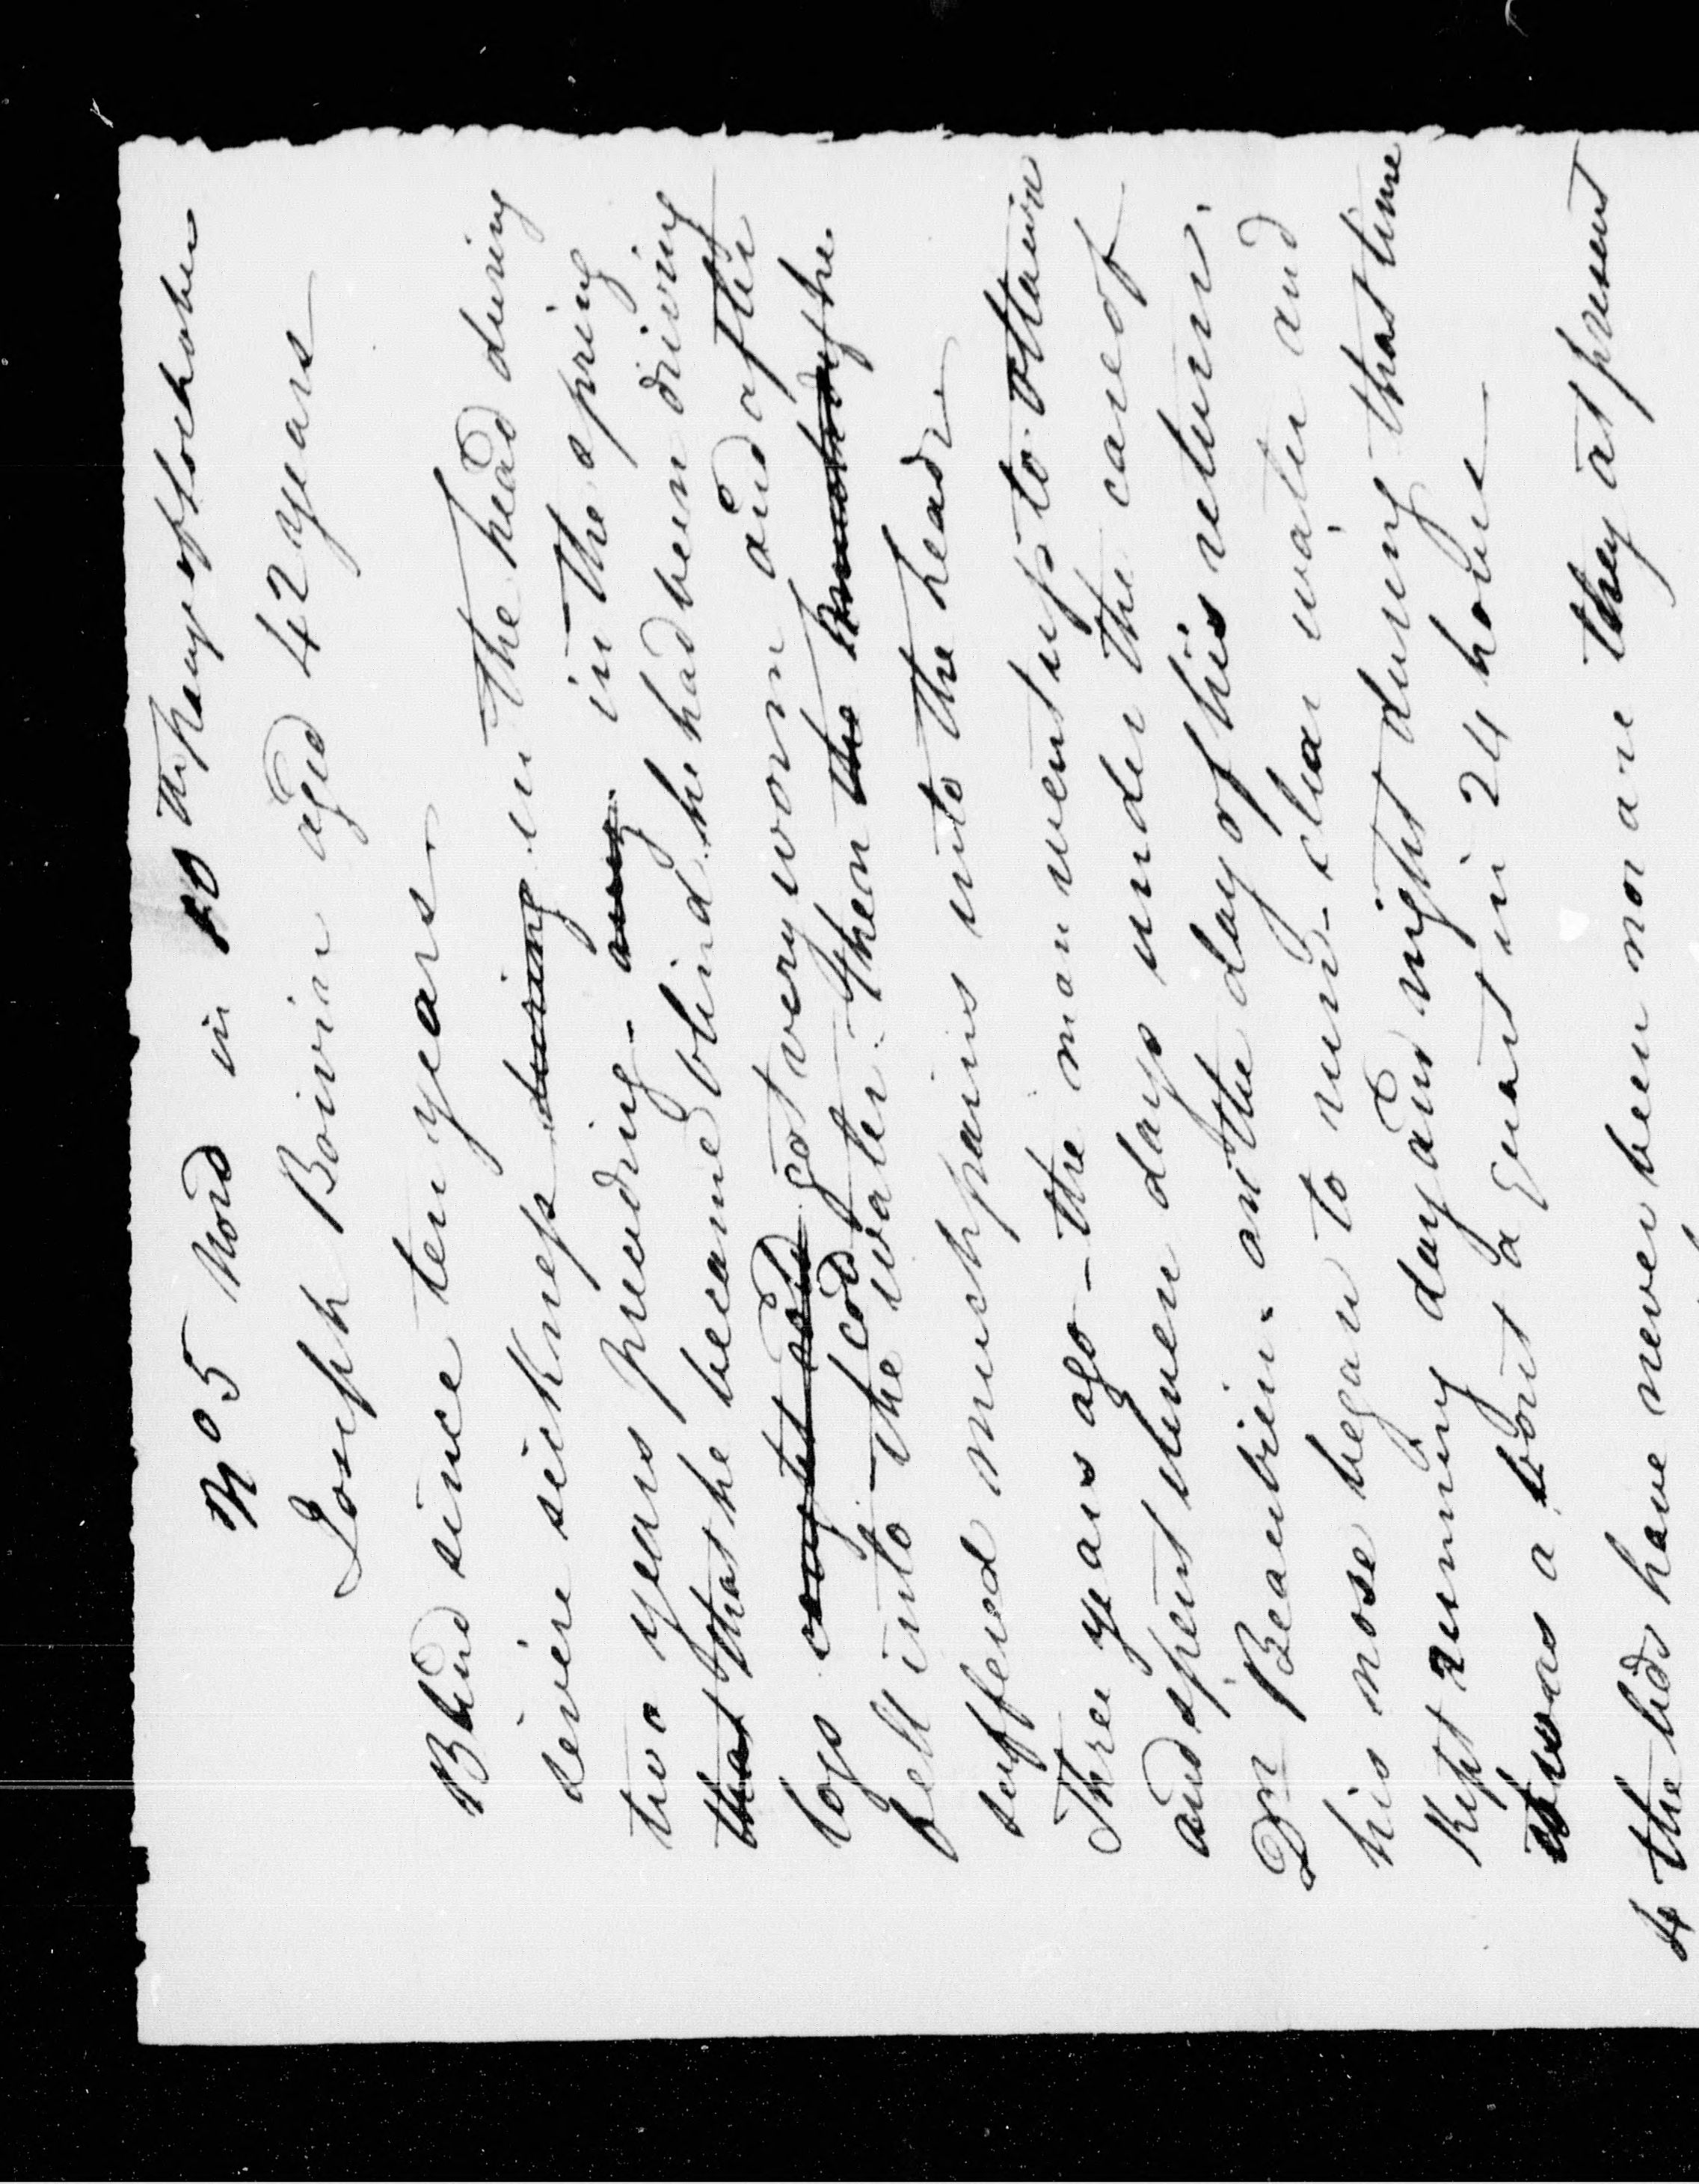 No 5 Nord in 10 Th Rang of
Joseph Boivin aged 42 years
Blind since ten years
severe sickness during in the head during
two years preceeding - in the spring
that that he became blind he had been driving
logs caught cold got very worn and after
fell into the cold water. then the the
suffered much pains into the head
Three years ago - the man went up to Ottawa
and spent eleven days under the care of
Dr Beaubien. on the day of his return.
his nose began to run - clear water and
Kept running day and night during that time
it was a bout a quart in 24 hours
the lids have never been nor are they at present